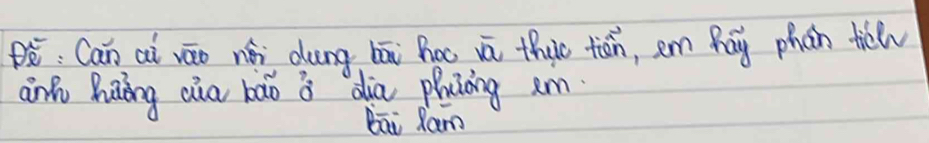 Đề: Căn cứ vào nội dung bài học và thực tiễn, em hãy phân tích
ảnh hưởng của bão ở địa phương em.
Bài làm